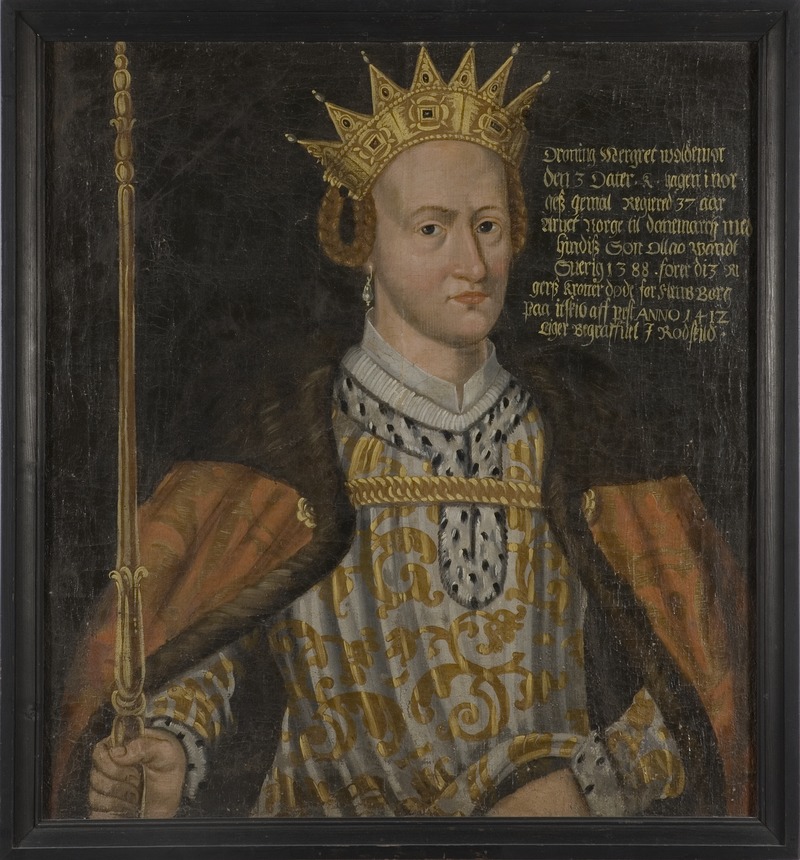 Droning Mergret woldemor
den 3 Dater . K . hagen i nor
geß gemal Regiered 37 aar
Arnet Norge til danemarck med
hindiß Son Ollao Wandt
Suerig 1388 .
gerß kroner døde for Flens Borg
paa ANNO 1412
Liger Begraffuet I Rodskild .